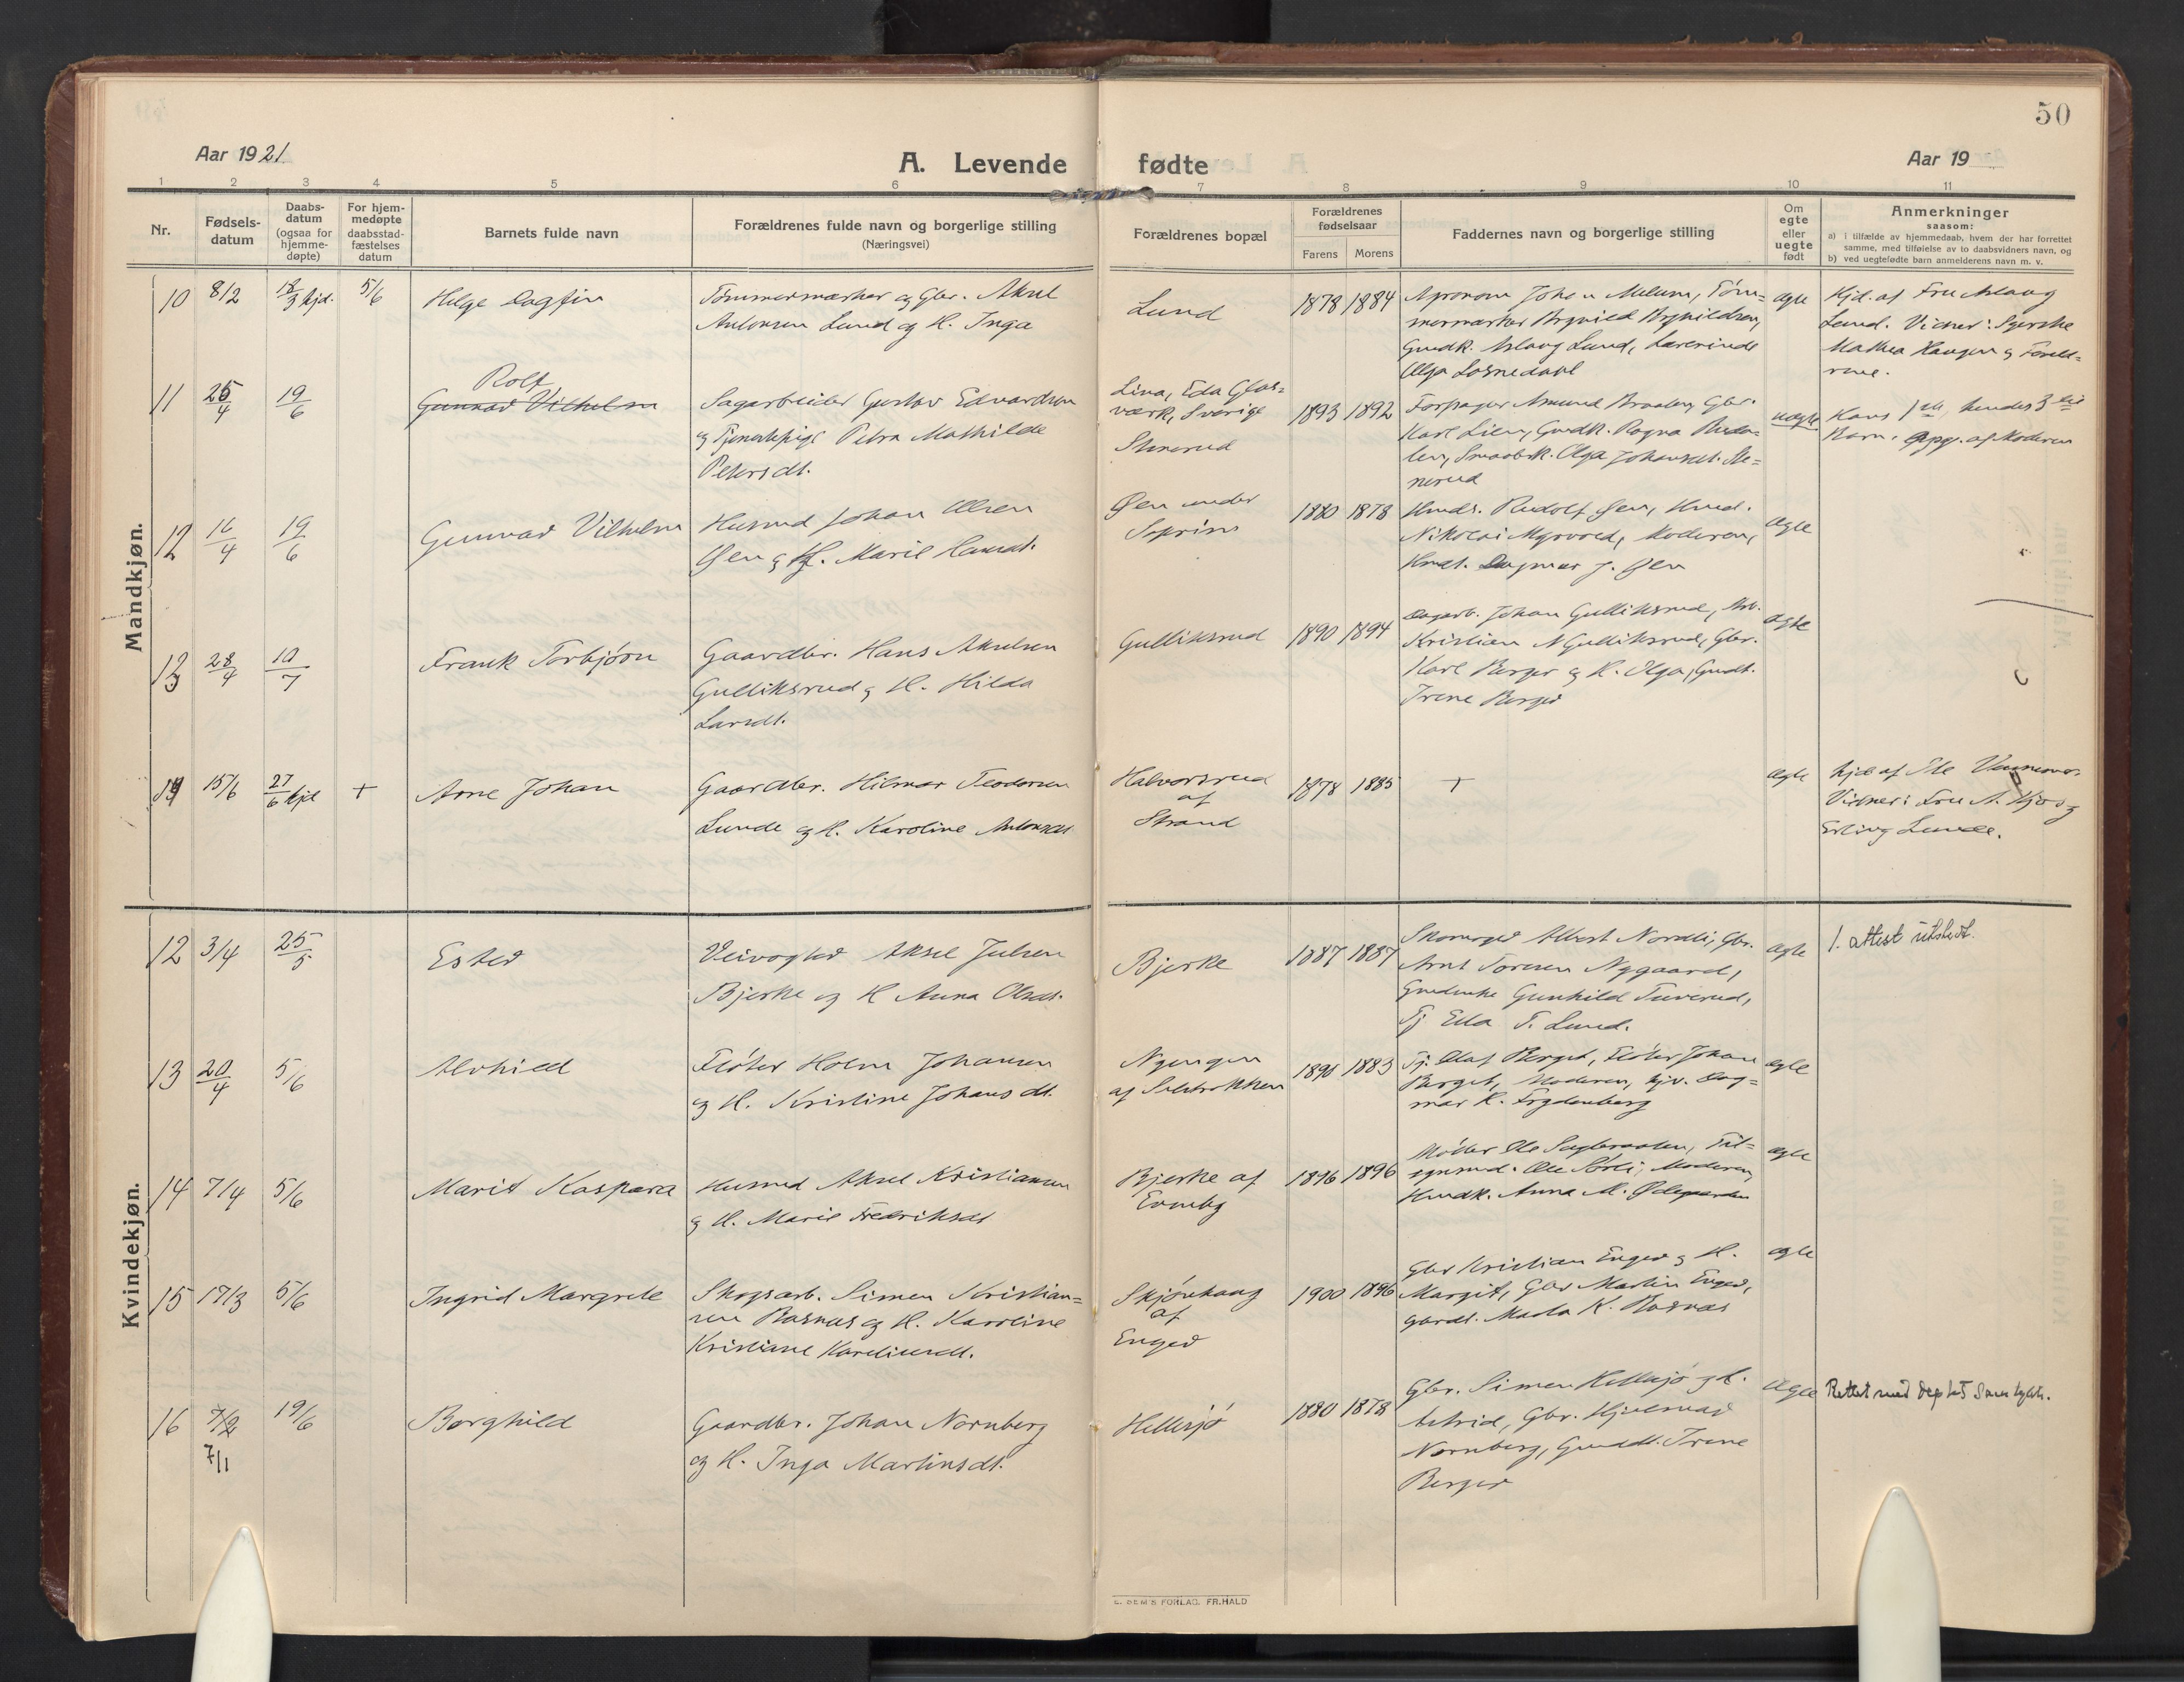 50
Aar 1921
A. Levende fødte
Aar 19
1 2 3 4 5 6 7 8 9 10 11
Nr.
Fødsels-
datum
Daabs-
datum
(ogsaa for
hjemme-
døpte)
For hjem-
medøpte
daabsstad-
fæstelses
datum
Barnets fulde navn
Forældrenes fulde navn og borgerlige stilling
(Næringsvei)
Forældrenes bopæl
Forældrenes
fødselsaar
Farens Morens
Faddernes navn og borgerlige stilling
Om
egte
eller
uegte
født
Anmerkninger
saasom:
a) i tilfælde av hjemmedaab, hvem der har forrettet
samme, med tilføielse av to daabsvidners navn, og
b) ved uegtefødte barn anmelderens navn m. v.
Mandkjøn.
10 8/2 18/3 hjd. 5/6 Helge Dagfin
Tømmermærker og Gbr. Aksel
Antonsen Lund og H. Inga
Lund
1878 1884
Agronom Johan Melum, Tøm=
mermærker Brynild Brynildsen,
Gmdk. Aslaug Lund, Lærerinde
Olga Losnedahl
ægte
Hjd. af Fru Aslaug
Lund. Vidner: Syerske
Mathea Haugen og Foreld=
rene.
11 25/4 19/6 Rolf
Gunnar Vilhelm
Sagarbeider Gustav Edvardsen
og Tjenestepige Petra Mathilde
Petersdt.
Liva, Eda Glas=
værk, Sverige
Stenerud
1893 1892
Forpagter Amund Braaten, Gbr.
Karl Lien, Gmdk. Ragna
Smaabrk. Olga Johansdt. Ste=
nerud
uægte
Hans 1ste, hendes 3die
Barn. Opg. af Moderen
12 16/4 19/6 Gunnar Vilhelm
Husmd Johan Olsen
Øen og H. Marie Hansdt.
Øen under
1880 1878
Hmds. Rudolf Øen, Hmd.
Nikolai Myrvold, Moderen,
Hmdt. Dagmar J. Øen
ægte
13 28/4 10/7 Frank Torbjørn
Gaardbr. Hans Akselsen
Gulliksrud og H. Hilda
Larsdt.
Gulliksrud
1890 1894
Sagarb. Johan Gulliksrud, Arb.
Kristian A Gulliksrud, Gbr.
Karl Berger og H. Olga, Gmdt.
Irene Berger
ægte
14 15/6 27/6 hjd + Arne Johan
Gaardbr. Hilmar Teodorsen
Lunde og H. Karoline Antonsdt.
Halvorsrud
af
Strand
1878 1885
+
ægte
hjd af Ole
Vidner: Fru A. Kjos og
Erling Lunde.
Kvindekjøn.
12 3/4 25/5 Ester
Veivogter Aksel Julsen
Bjerke og H Anna Olsdt.
Bjerke
1887 1887
Skomager Albert Nordli, Gbr.
Arnt Toresen Nygaard,
Gmdenke Gunhild Tuverud,
Tj Ella T. Lund.
ægte
1. attest utstedt.
13 20/4 5/6 Alvhild
Fløter Holm Johansen
og H. Kristine Johansdt.
Nyengen
1883
Tj. Olaf Berget, Fløter Johan
Berget, Moderen, hjv. Dag=
mar K. Frydenberg
ægte
14 7/4 5/6 Marit Kaspara
Husmd Aksel Kristiansen
og H. Marie Fredriksdt
Bjerke af
1896 1896
Møller Ole Sagbraaten, Til=
synsmd. Ole Sørli, Moderen,
Hmdk. Anna M. Ødegaarden
ægte
15 17/3 5/6 Ingrid Margrete
Skogsarb. Simen Kristian=
sen Basnæs og H. Karoline
Kristiane Kareliusdt.
Skjønhaug
af
Enger
1900 1896
Gbr Kristian Enger og H.
Margit, Gbr Martin Enger,
Gmdt. Marta K. Basnæs
ægte
16 7/2 19/6 Borghild
7/1
Gaardbr. Johan Nornberg
og H. Inga Martinsdt.
Hellesjø
1880 1878
Gbr. Simen Hellesjø og H.
Astrid, Gbr. Hjalmar
Nornberg, Gmdt. Irene
Berger
ægte
Rettet med Dep.tets Samtykke.
E. SEM'S FORLAG. FR.HALD